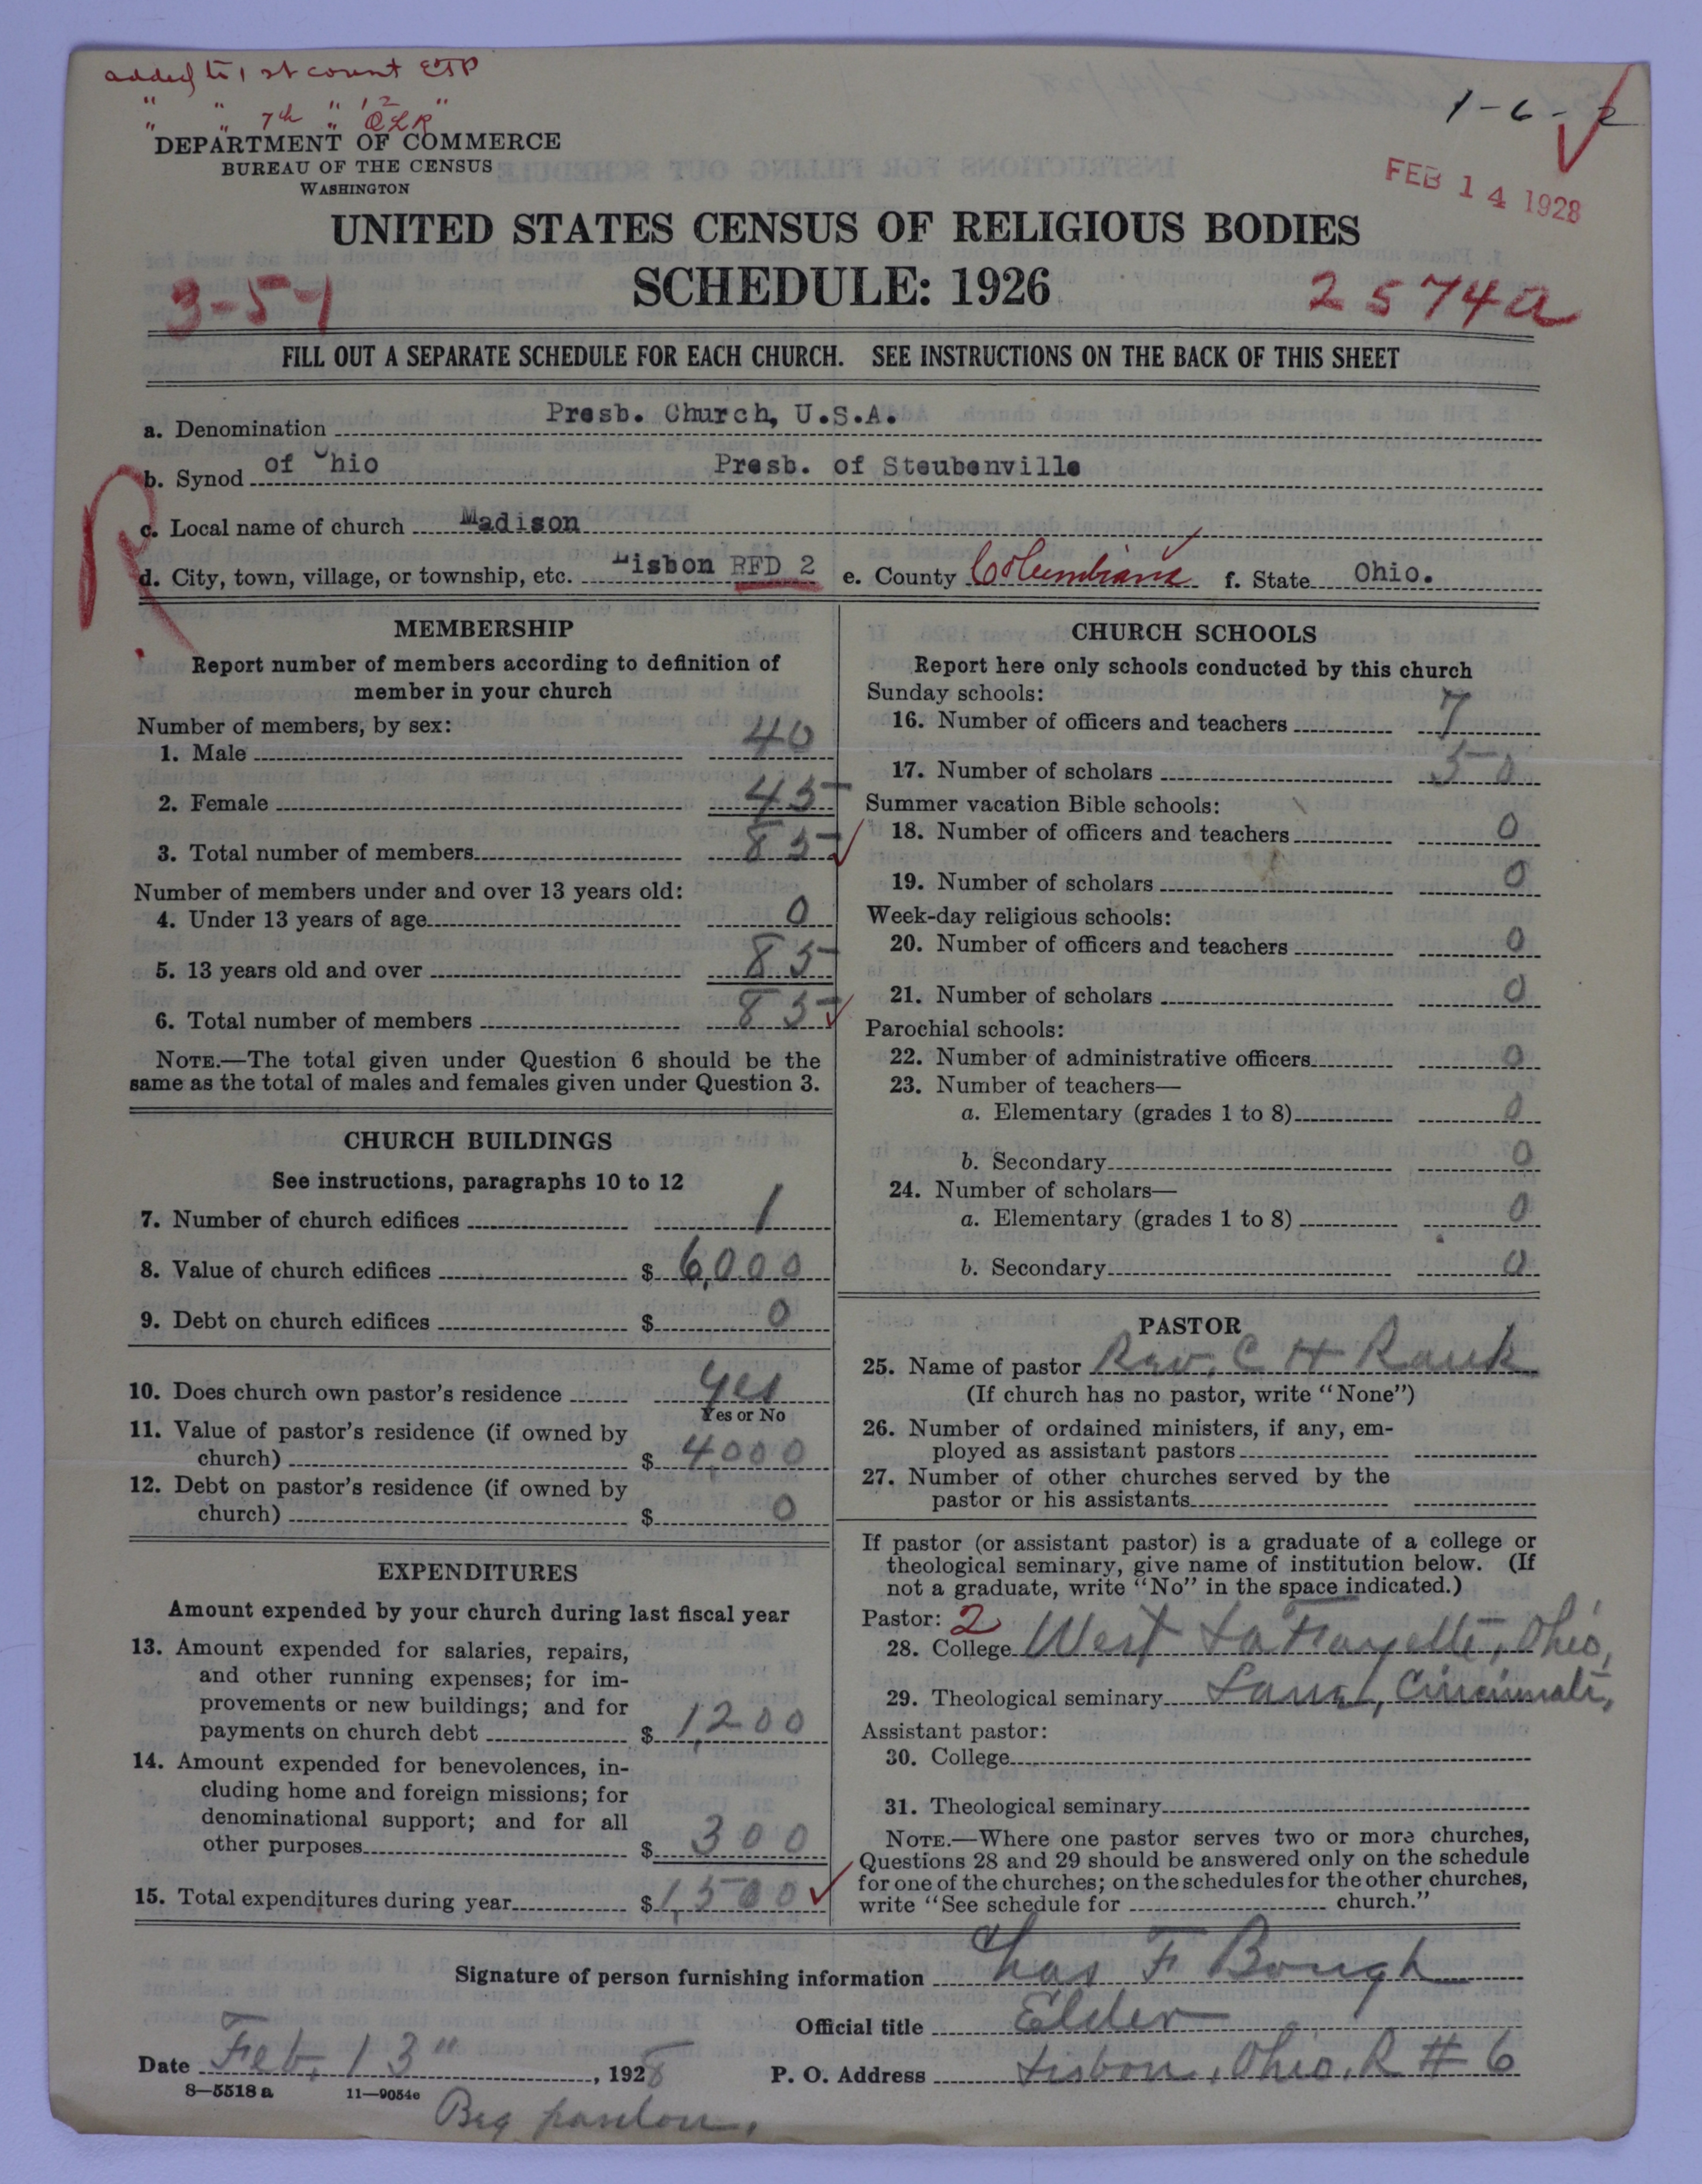 added to 1st count ETP
" " 7th " 12 "
" " " QLR
1-6-2
DEPARTMENT OF COMMERCE
BUREAU OF THE CENSUS
WASHINGTON
FEB 14 1928
UNITED STATES CENSUS OF RELIGIOUS BODIES
SCHEDULE: 1926
3-54
2574a
FILL OUT A SEPARATE SCHEDULE FOR EACH CHURCH. SEE INSTRUCTIONS ON THE BACK OF THIS SHEET
a. Denomination Presb. Church, U.S.A.
b. Synod of Ohio Presb. of Steubenville
R
c. Local name of church Madison
d. City, town, village, or township, etc. Lisbon RFD 2 e. County Columbiana f. State Ohio.
MEMBERSHIP
Report number of members according to definition of
member in your church
Number of members, by sex:
1. Male 40
2. Female 45
3. Total number of members 85
Number of members under and over 13 years old:
4. Under 13 years of age 0
5. 13 years old and over 85
6. Total number of members 85
NOTE.—The total given under Question 6 should be the
same as the total of males and females given under Question 3.
CHURCH BUILDINGS
See instructions, paragraphs 10 to 12
7. Number of church edifices 1
8. Value of church edifices $ 6,000
9. Debt on church edifices $ 0
10. Does church own pastor's residence yes
Yes or No
11. Value of pastor's residence (if owned by
church) $ 4,000
12. Debt on pastor's residence (if owned by
church) $ 0
EXPENDITURES
Amount expended by your church during last fiscal year
13. Amount expended for salaries, repairs,
and other running expenses; for im-
provements or new buildings; and for
payments on church debt $ 1,200
14. Amount expended for benevolences, in-
cluding home and foreign missions; for
denominational support; and for all
other purposes $ 300
15. Total expenditures during year $ 1,500
CHURCH SCHOOLS
Report here only schools conducted by this church
Sunday schools:
16. Number of officers and teachers 7
17. Number of scholars 50
Summer vacation Bible schools:
18. Number of officers and teachers 0
19. Number of scholars 0
Week-day religious schools:
20. Number of officers and teachers 0
21. Number of scholars 0
Parochial schools:
22. Number of administrative officers 0
23. Number of teachers—
a. Elementary (grades 1 to 8) 0
b. Secondary 0
24. Number of scholars—
a. Elementary (grades 1 to 8) 0
b. Secondary 0
PASTOR
25. Name of pastor Rev. C H Rauk
(If church has no pastor, write "None")
26. Number of ordained ministers, if any, em-
ployed as assistant pastors
27. Number of other churches served by the
pastor or his assistants
If pastor (or assistant pastor) is a graduate of a college or
theological seminary, give name of institution below. (If
not a graduate, write "No" in the space indicated.)
Pastor: 2
28. College West LaFrayette, Ohio,
29. Theological seminary Cincinnati,
Assistant pastor:
30. College
31. Theological seminary
NOTE.—Where one pastor serves two or more churches,
Questions 28 and 29 should be answered only on the schedule
for one of the churches; on the schedules for the other churches,
write "See schedule for church."
Signature of person furnishing information Chas F Bough
Official title Elder
Date Feb, 13", 1928 P. O. Address Lisbon, Ohio, R # 6
8—5518 a 11—9054c
Beg pardon.